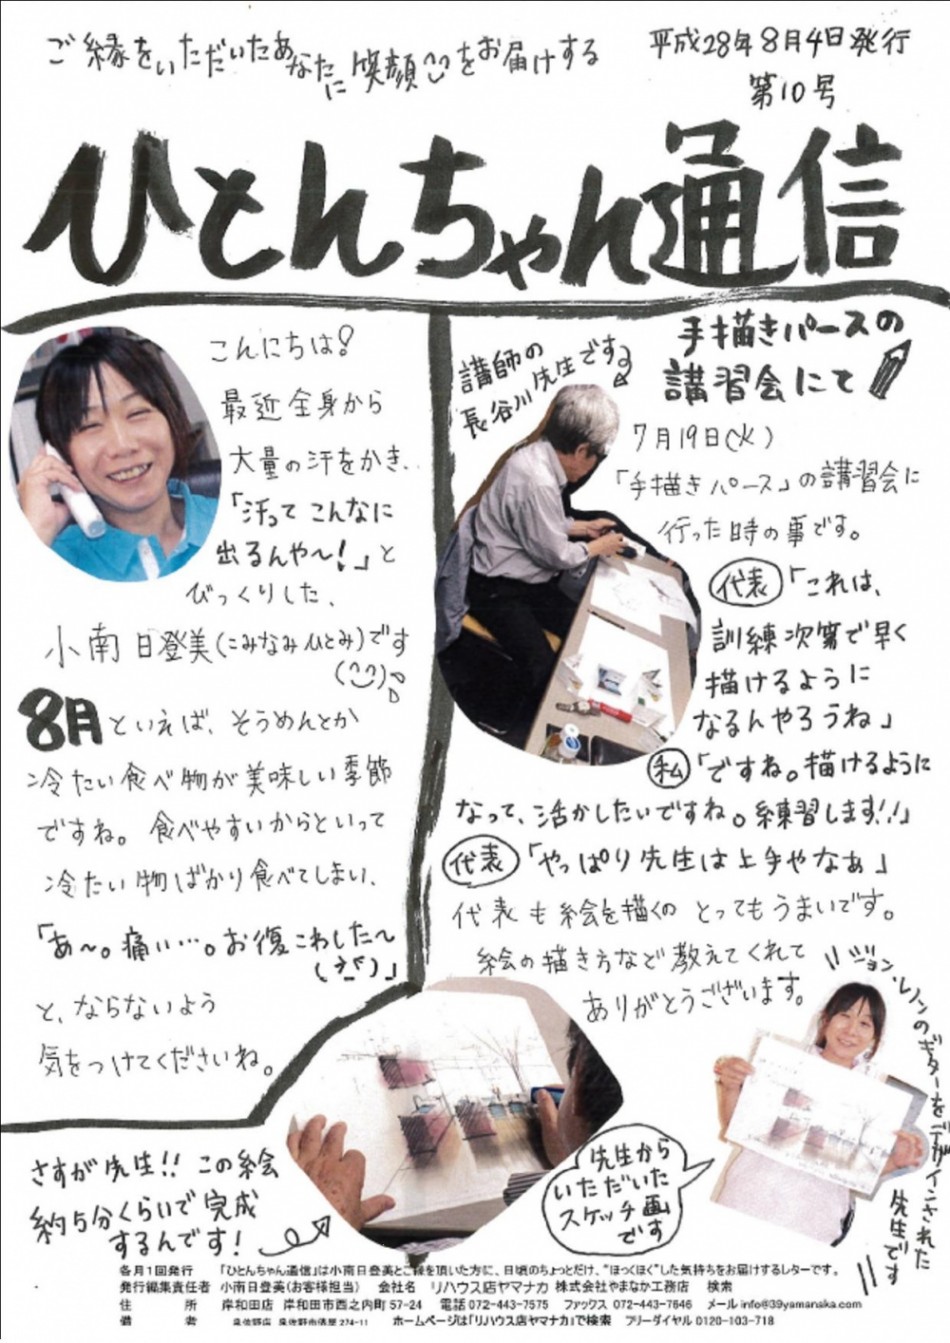 ご縁をいただいたあなたに笑顔をお届けする
平成28年8月4日発行
第10号
ひとんちゃん通信
こんにちは!
最近全身から
大量の汗をかき、
「汗って こんなに
出るんや〜!」と
びっくりした、
小南日登美(こみなみひとみ)です
(^^)
8月といえば、そうめんとか
冷たい食べ物が美味しい季節
ですね。食べやすいからといって
冷たい物ばかり食べてしまい、
「あ〜。痛い…。お復こわした〜
」
と、ならないよう
気をつけてくださいね。
手描きパースの
講習会にて
講師の
長谷川先生です
7月19日(火)
「手描きパース」の講習会に
行った時の事です。
代表「これは、
訓練次第で早く
描けるように
なるんやろうね」
私「ですね。描けるように
なって、活かしたいですね。練習します!!」
代表「やっぱり先生は上手やなぁ」
代表も絵を描くのとってもうまいです。
絵の描き方など教えてくれて
ありがとうございます。
ジョン・レノンのギターをデザインされた
先生です
さすが先生!! この絵
約5分くらいで完成
するんです!
先生から
いただいた
スケッチ画
です
各月1回発行 「ひとんちゃん通信」は小南日登美とご縁を頂いた方に、日頃のちょっとだけ、"ほっくほく"した気持ちをお届けするレターです。
発行編集責任者 小南日登美(お客様担当) 会社名 リハウス店ヤマナカ 株式会社やまなか工務店 検索
住 所 岸和田店 岸和田市西之内町57-24 電話 072-443-7575 ファックス 072-443-7646 メール info@39yamanaka.com
備 考 泉佐野店 泉佐野市俵屋 274-11 ホームページは「リハウス店ヤマナカ」で検索 フリーダイヤル 0120-103-718